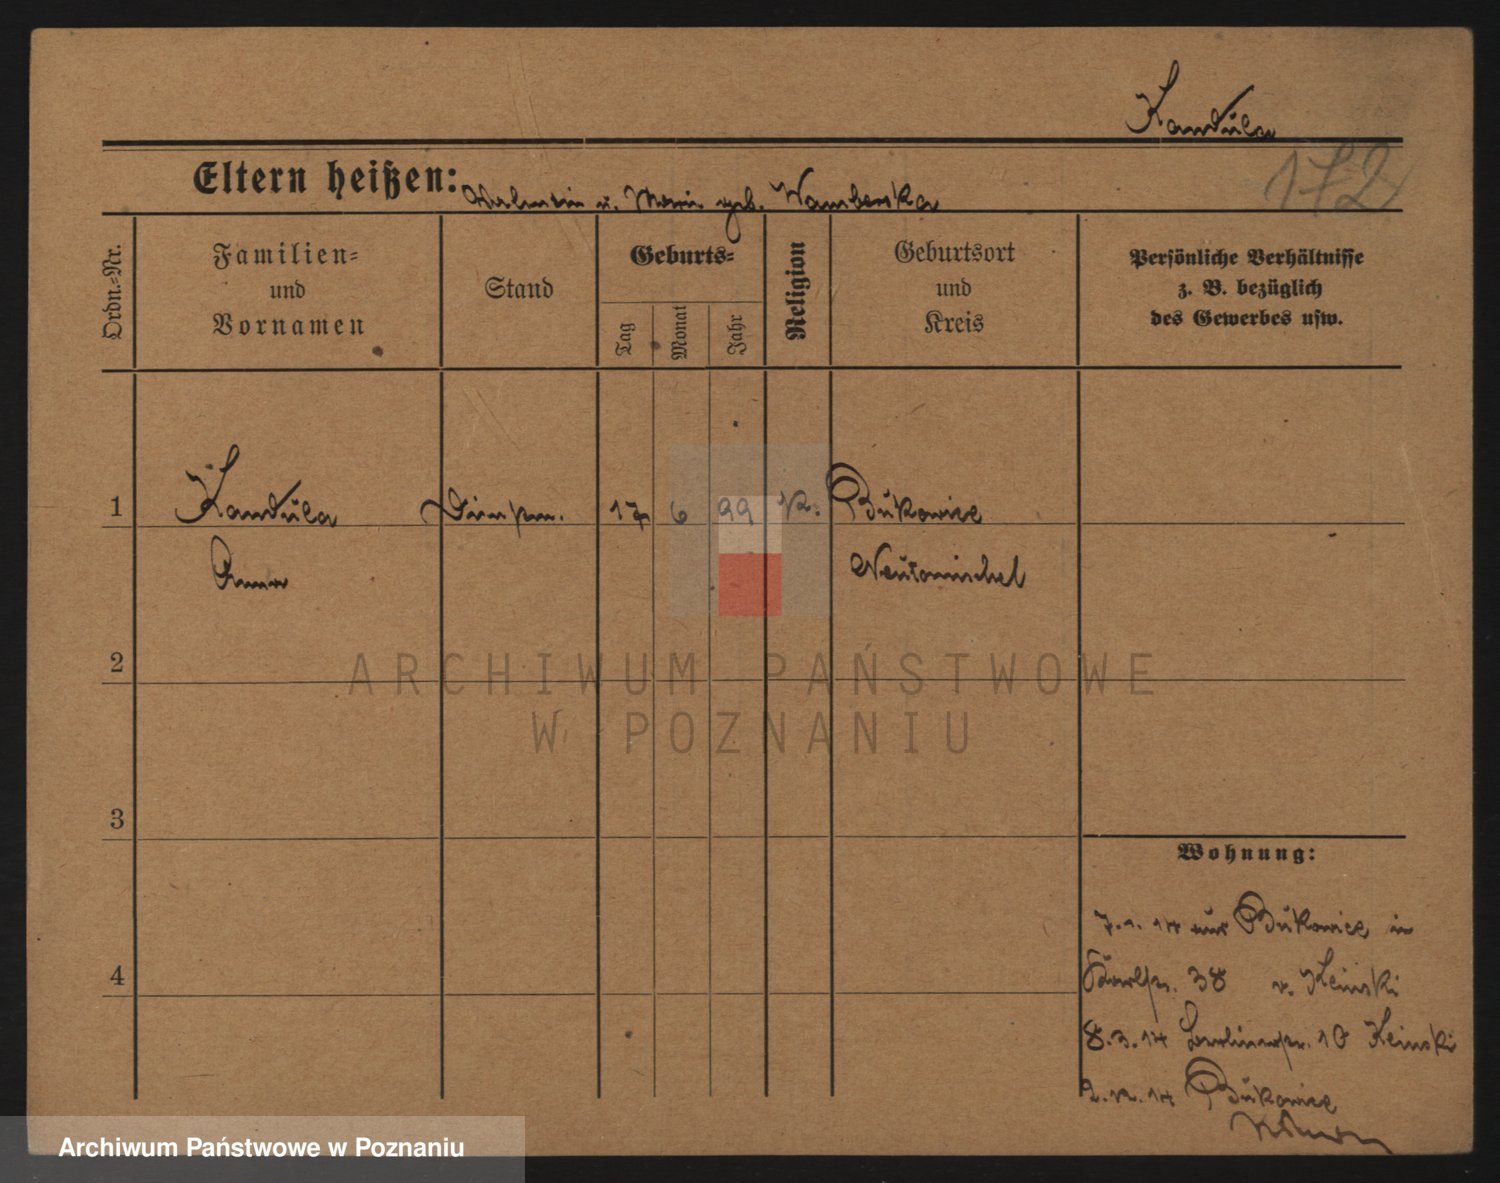 Kandula
172
Eltern heißen: Valentin u. Marie geb. Wamberska
Ordn.=Nr.
Familien=
und
Vornamen
Stand
Geburts=
Tag
Monat
Jahr
Religion
Geburtsort
und
Kreis
Persönliche Verhältnisse
z. B. bezüglich
des Gewerbes usw.
1 Kandula 17 6 99 k. Bukowiec
Anna Neutomischel
2
ARCHIWUM PAŃSTWOWE
W POZNANIU
3
Wohnung:
7.1.14 aus Bukowiec in
4
38 b. Keinski
8.3.14 Berlinerstr. 10 Keinski
2.12.14 Bukowiec
Archiwum Państwowe w Poznaniu